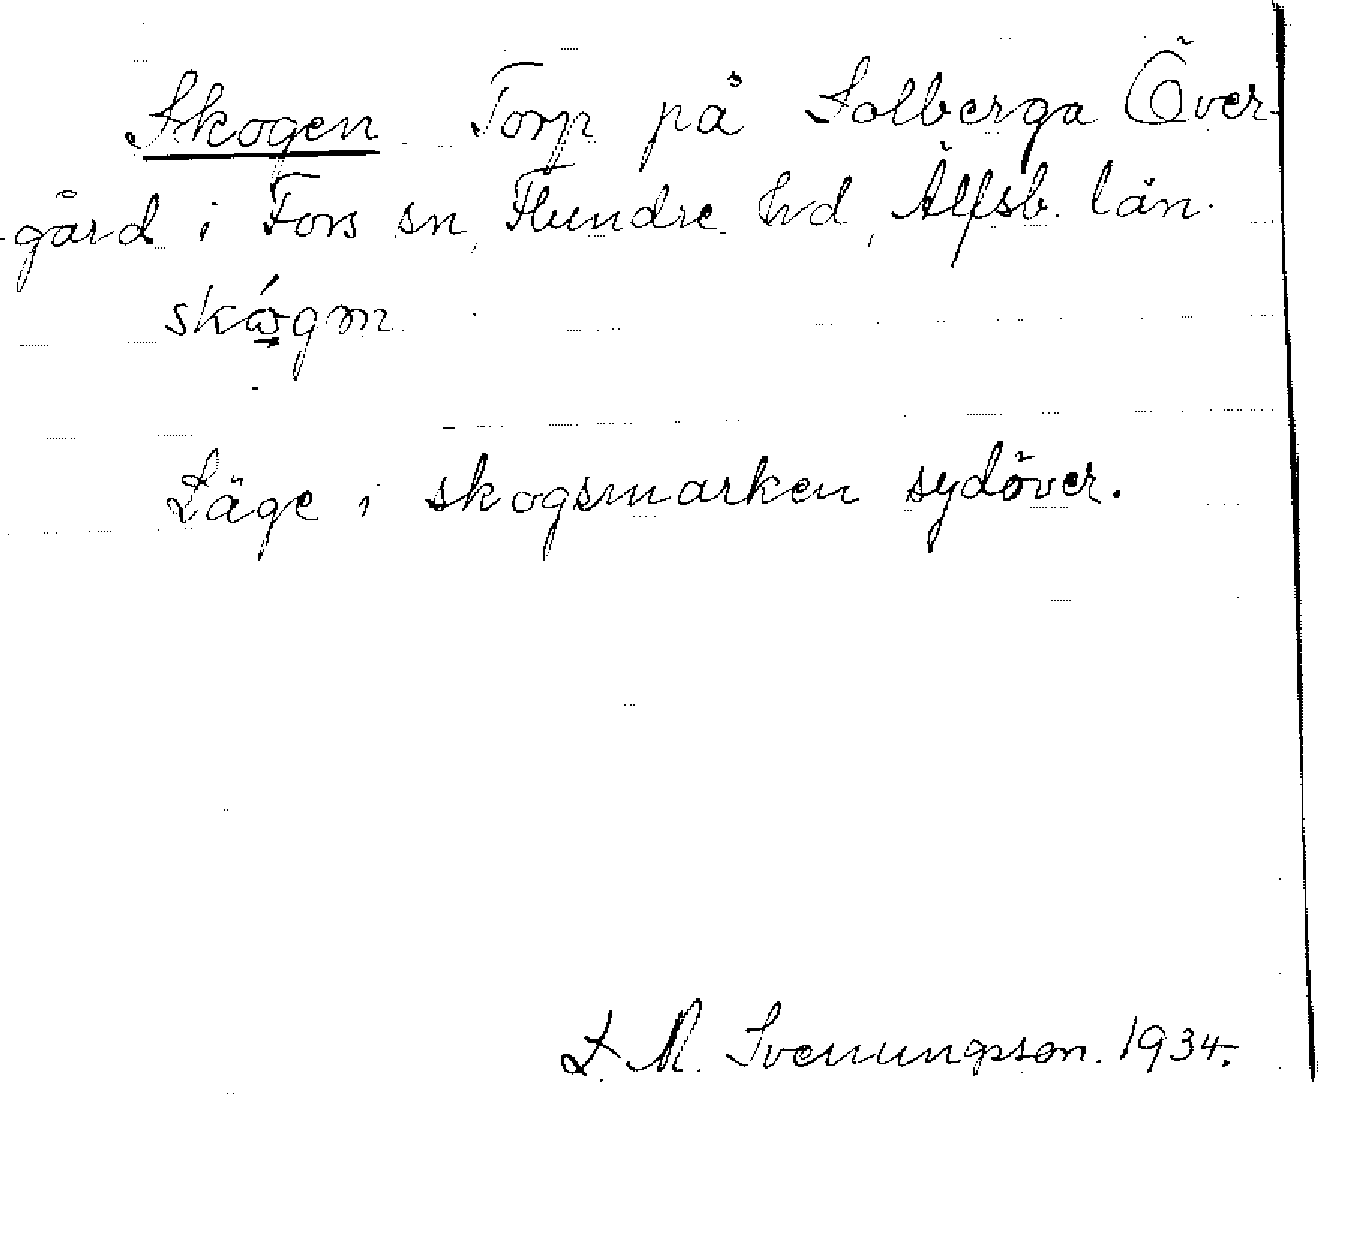 Skogen Torp på Solberga Över-
gård i Fors sn, Flundre hd, Älfsb. län.
Läge i skogsmarken sydöver.
L. M. Svenungsson. 1934.